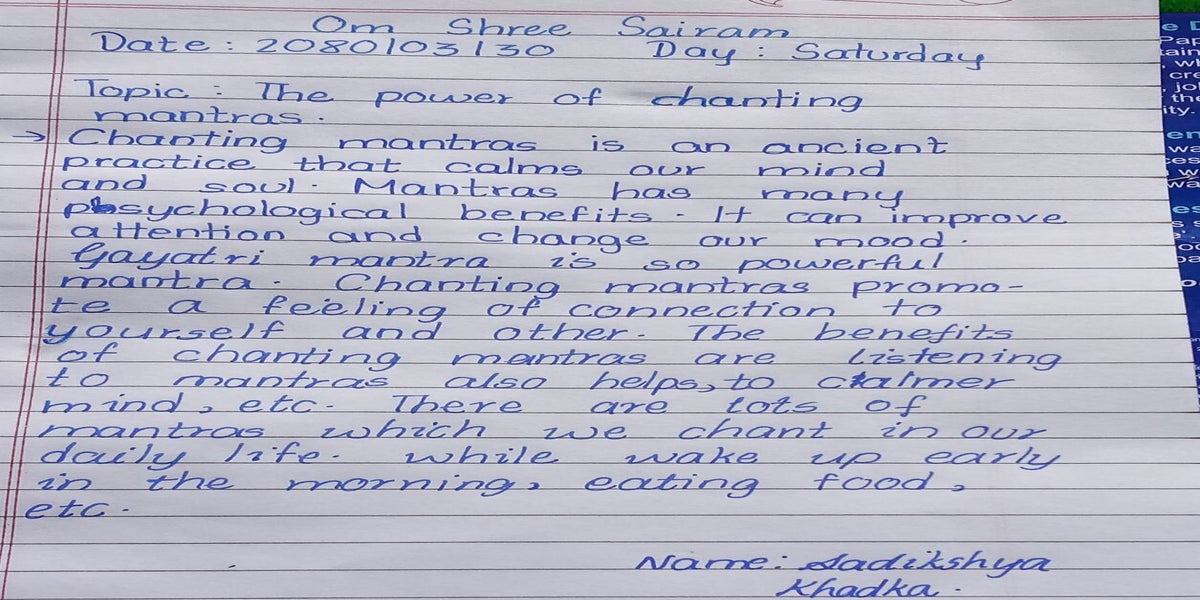 Om Shree Sairam
Date : 2080/03/30 Day : Saturday
Topic : The power of chanting
mantras.
→ Chanting mantras is an ancient
practice that calms our mind
and soul. Mantras has many
psychological benefits. It can improve
attention and change our mood.
Gayatri mantra is so powerful
mantra. Chanting mantras promo-
te a feeling of connection to
yourself and other. The benefits
of chanting mantras are listening
to mantras also helps, to calmer
mind, etc. There are lots of
mantras which we chant in our
daily life. while wake up early
in the morning, eating food,
etc.
Name: Sadikshya
Khadka.